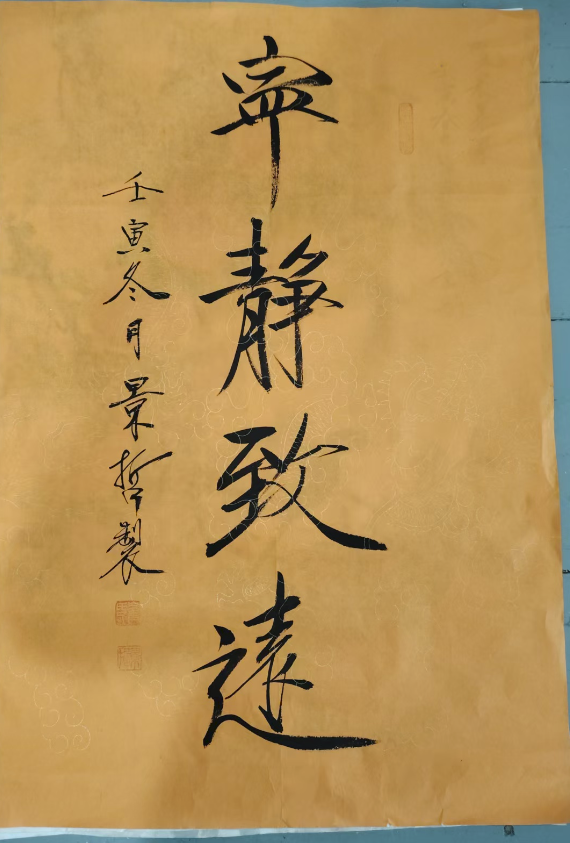 寧靜致遠
壬寅冬月景哲製